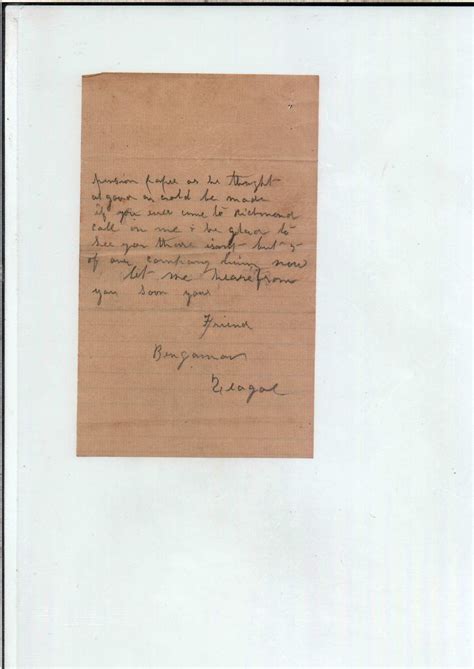 pension paper as he thought
as good as could be made
if you ever come to Richmond
call on me & be glad to
see you there isnt but 5
of our company living now
let me hear from
you soon your
Friend
Bengaman